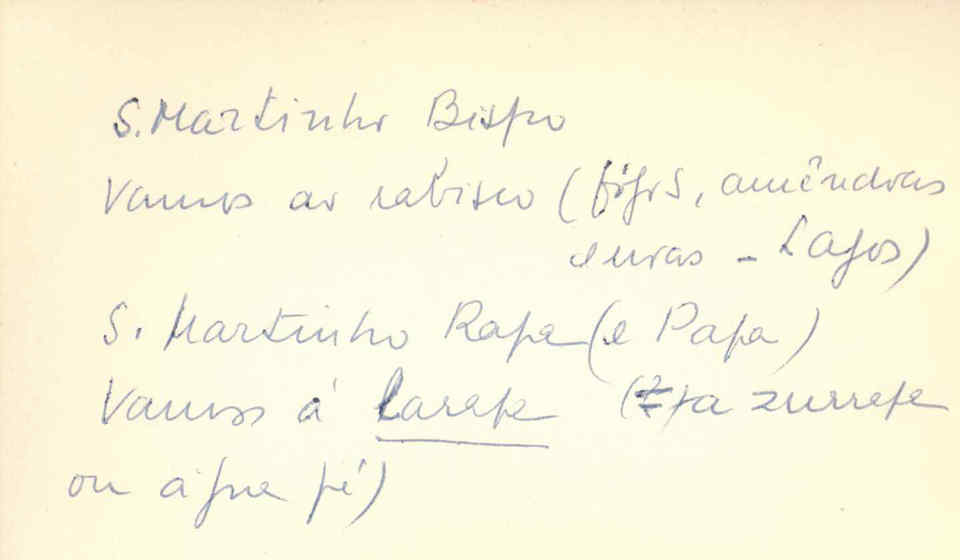 S. Martinho Bispo
Vamos ao rabisco (figos, amêndoas
e uvas - Lagos)
S. Martinho Rapa (e Papa)
Vamos à larapa a zurrapa
ou água pé)